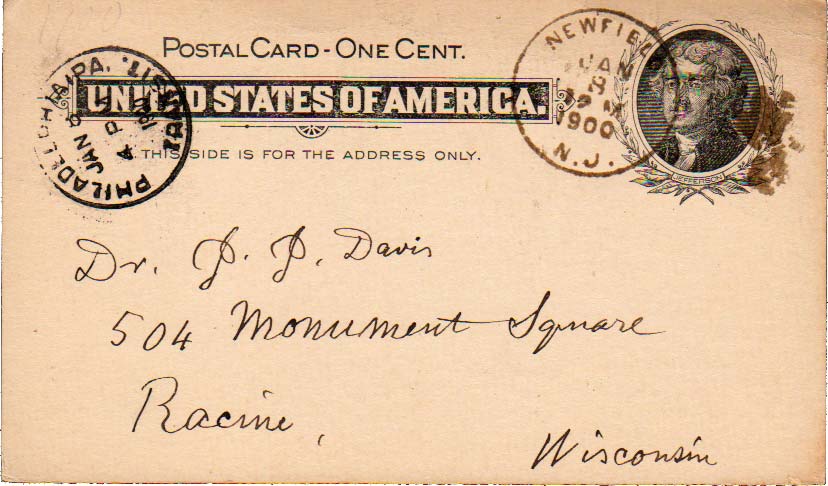 POSTAL CARD - ONE CENT.
UNITED STATES OF AMERICA.
THIS SIDE IS FOR THE ADDRESS ONLY.
PHILADELPHIA, PA. TRANSIT
JAN 8
4 P
NEWFIEL
JAN
8
1900
N.J.
JEFFERSON
Dr. J. J. Davis
504 Monument Square
Racine,
Wisconsin